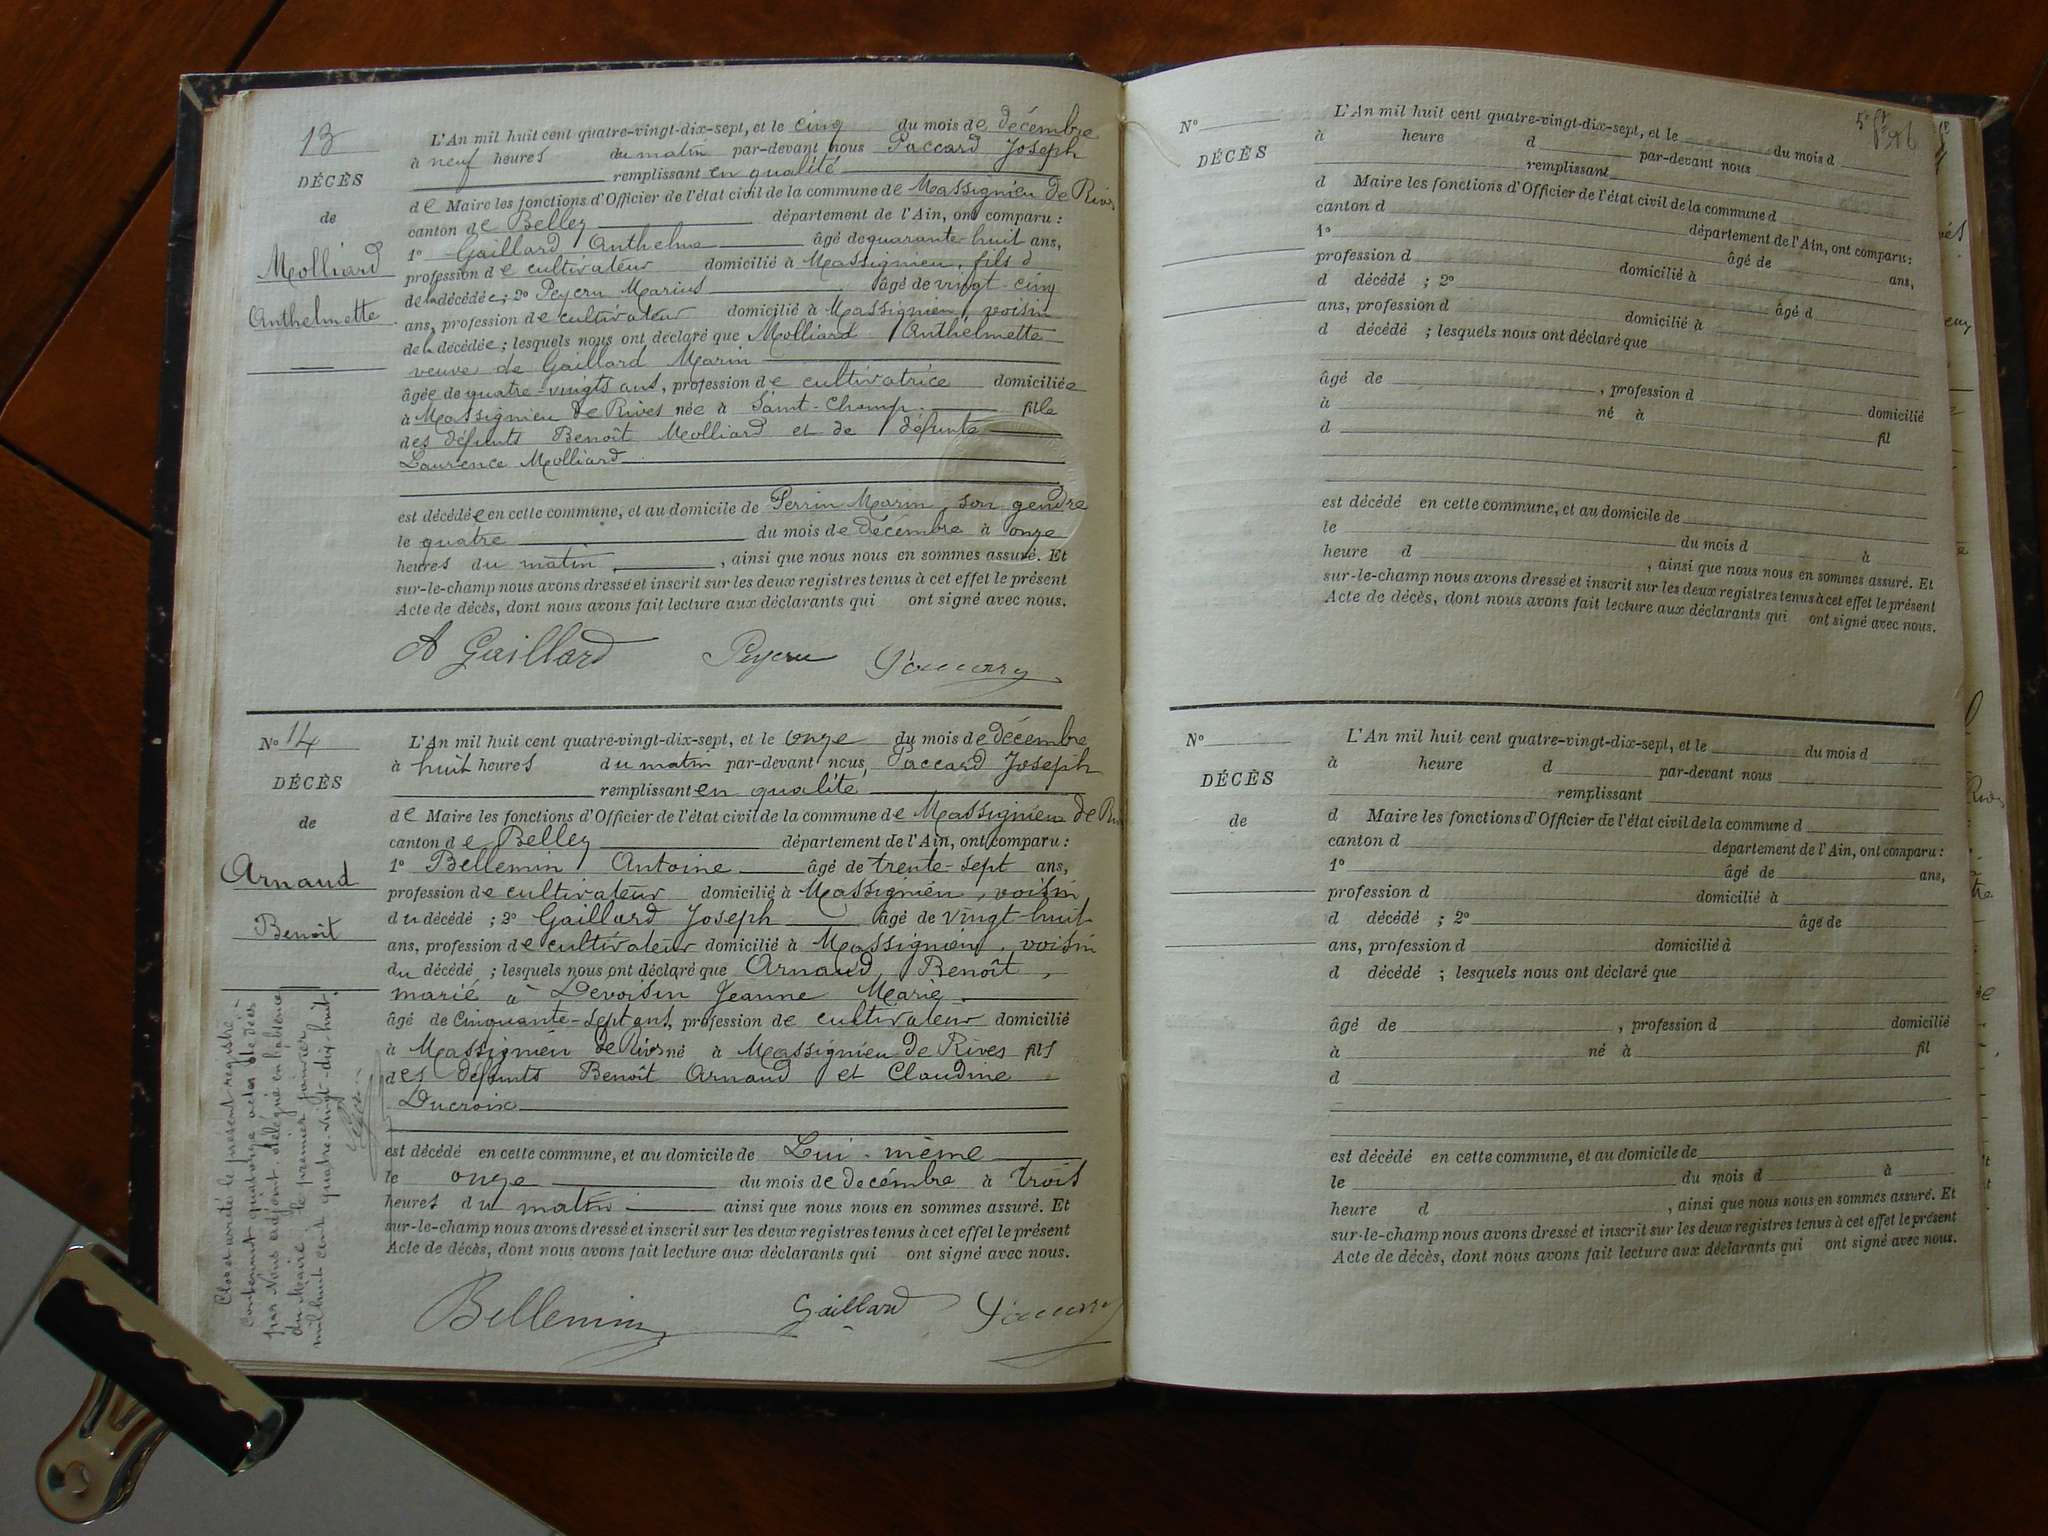 13
DÉCÈS
de
Molliard
Anthelmette
L'An mil huit cent quatre-vingt-dix-sept, et le cinq du mois de décembre
à neuf heures du matin par-devant nous Paccard Joseph
remplissant en qualité
de Maire les fonctions d'Officier de l'état civil de la commune de Massignieu de Rives
canton de Belley département de l'Ain, ont comparu :
1º Gaillard Anthelme âgé de quarante-huit ans,
profession de cultivateur domicilié à Massignieu, fils d
de la décédée ; 2º Peycru Marius âgé de vingt-cinq
ans, profession de cultivateur domicilié à Massignieu, voisin
de la décédée ; lesquels nous ont déclaré que Molliard Anthelmette
veuve de Gaillard Marin
âgée de quatre-vingts ans, profession de cultivatrice domiciliée
à Massignieu de Rives née à Saint-Champ fille
des défunts Benoît Molliard et de défunte
Laurence Molliard
est décédée en cette commune, et au domicile de Perrin Marin, son gendre
le quatre du mois de décembre à onze
heures du matin, ainsi que nous nous en sommes assuré. Et
sur-le-champ nous avons dressé et inscrit sur les deux registres tenus à cet effet le présent
Acte de décès, dont nous avons fait lecture aux déclarants qui ont signé avec nous.
A Gaillard Peycru
Nº 14
DÉCÈS
de
Arnaud
Benoît
L'An mil huit cent quatre-vingt-dix-sept, et le onze du mois de décembre
à huit heures du matin par-devant nous, Paccard Joseph
remplissant en qualité
de Maire les fonctions d'Officier de l'état civil de la commune de Massignieu de
canton de Belley département de l'Ain, ont comparu :
1º Bellemin Antoine âgé de trente-sept ans,
profession de cultivateur domicilié à Massignieu, voisin
du décédé ; 2º Gaillard Joseph âgé de vingt huit
ans, profession de cultivateur domicilié à Massignieu, voisin
du décédé ; lesquels nous ont déclaré que Arnaud, Benoît,
marié à Devoisin Jeanne Marie
âgé de Cinquante-sept ans, profession de cultivateur domicilié
à Massignieu de Rives né à Massignieu de Rives fils
des défunts Benoît Arnaud et Claudine
Ducroix
est décédé en cette commune, et au domicile de Lui-même
le onze du mois de décembre à trois
heures du matin ainsi que nous nous en sommes assuré. Et
sur-le-champ nous avons dressé et inscrit sur les deux registres tenus à cet effet le présent
Acte de décès, dont nous avons fait lecture aux déclarants qui ont signé avec nous.
Bellemin Gaillard
Clos et arrêté le présent registre
contenant quatorze actes de décès
par Nous adjoint délégué en l'absence
du Maire le premier janvier
mil huit cent quatre-vingt-dix-huit.
Nº
DÉCÈS
L'An mil huit cent quatre-vingt-dix-sept, et le du mois d
à heure d par-devant nous
remplissant
d Maire les fonctions d'Officier de l'état civil de la commune d
canton d département de l'Ain, ont comparu :
1º âgé de ans,
profession d domicilié à
d décédé ; 2º âgé d
ans, profession d domicilié à
d décédé ; lesquels nous ont déclaré que
âgé de , profession d domicilié
à né à fil
d
est décédé en cette commune, et au domicile de
le du mois d à
heure d , ainsi que nous nous en sommes assuré. Et
sur-le-champ nous avons dressé et inscrit sur les deux registres tenus à cet effet le présent
Acte de décès, dont nous avons fait lecture aux déclarants qui ont signé avec nous.
Nº
DÉCÈS
de
L'An mil huit cent quatre-vingt-dix-sept, et le du mois d
à heure d par-devant nous
remplissant
d Maire les fonctions d'Officier de l'état civil de la commune d
canton d département de l'Ain, ont comparu :
1º âgé de ans,
profession d domicilié à
d décédé ; 2º âgé de
ans, profession d domicilié à
d décédé ; lesquels nous ont déclaré que
âgé de , profession d domicilié
à né à fil
d
est décédé en cette commune, et au domicile de
le du mois d à
heure d , ainsi que nous nous en sommes assuré. Et
sur-le-champ nous avons dressé et inscrit sur les deux registres tenus à cet effet le présent
Acte de décès, dont nous avons fait lecture aux déclarants qui ont signé avec nous.